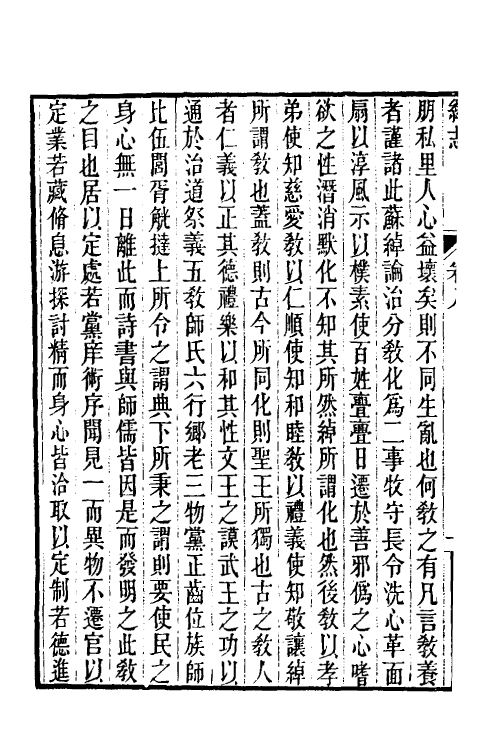 繹志
卷八
一
朋私里人心益壞矣則不同生亂也何敎之有凡言敎養
者謹諸此蘇綽論治分敎化爲二事牧守長令洗心革面
扇以淳風示以樸素使百姓亹亹日遷於善邪僞之心嗜
欲之性潛消默化不知其所然綽所謂化也然後敎以孝
弟使知慈愛敎以仁順使知和睦敎以禮義使知敬讓綽
所謂敎也蓋敎則古今所同化則聖王所獨也古之敎人
者仁義以正其德禮樂以和其性文王之謨武王之功以
通於治道祭義五敎師氏六行鄉老三物黨正齒位族師
比伍閭胥觥撻上所令之謂典下所秉之謂則要使民之
身心無一日離此而詩書與師儒皆因是而發明之此敎
之目也居以定處若黨庠術序聞見一而異物不遷官以
定業若藏脩息游探討精而身心皆治取以定制若德進